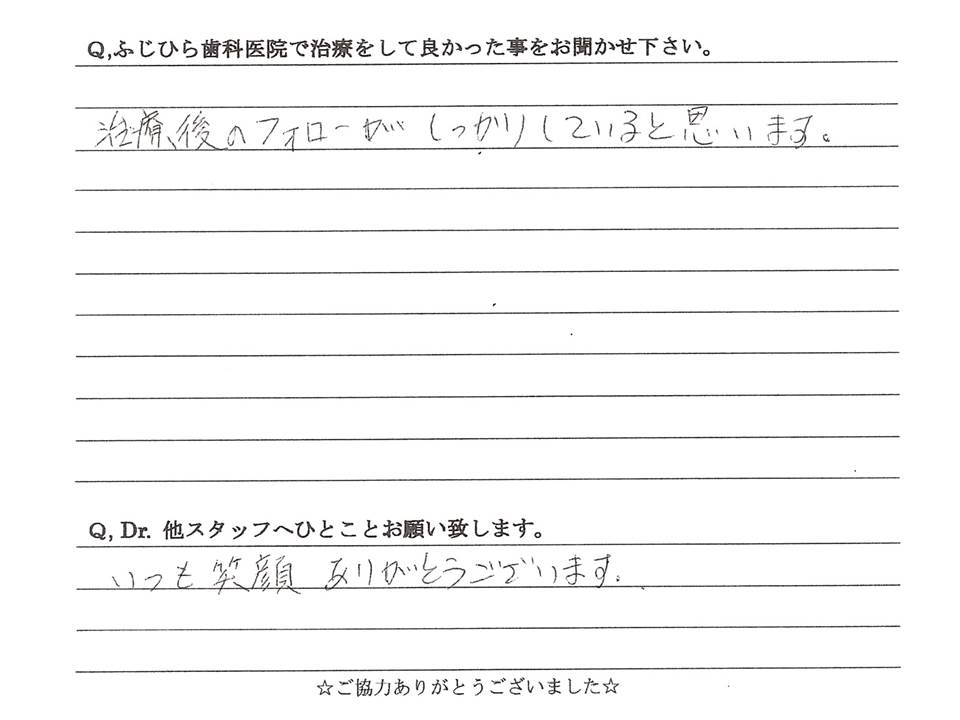 Q,ふじひら歯科医院で治療をして良かった事をお聞かせ下さい。
治療後のフォローが しっかりしていると思います。
Q, Dr. 他スタッフへひとことお願い致します。
いつも笑顔 ありがとうございます.
☆ご協力ありがとうございました☆